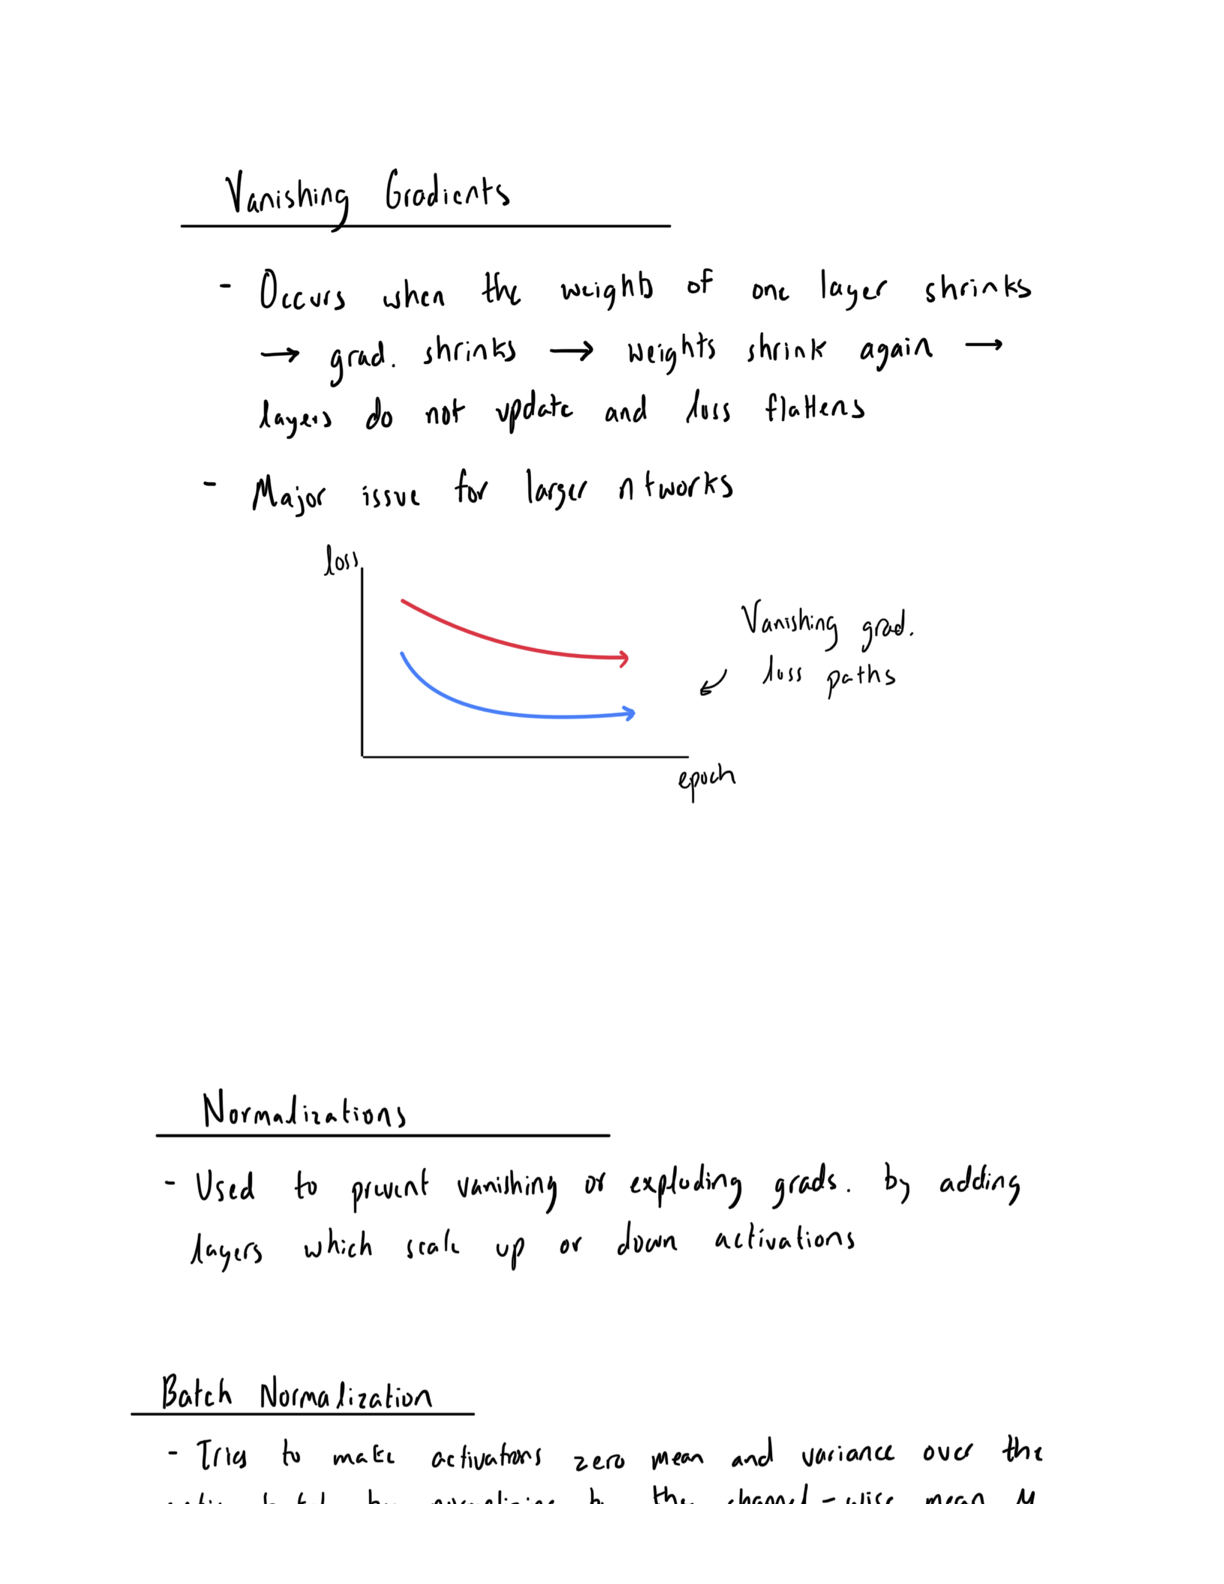 Vanishing Gradients
- Occurs when the weights of one layer shrinks
→ grad. shrinks → weights shrink again →
layers do not update and loss flattens
- Major issue for larger ntworks
loss
Vanishing grad.
loss paths
epoch
Normalizations
- Used to prevent vanishing or exploding grads. by adding
layers which scale up or down activations
Batch Normalization
- Tries to make activations zero mean and variance over the
the channel-wise mean